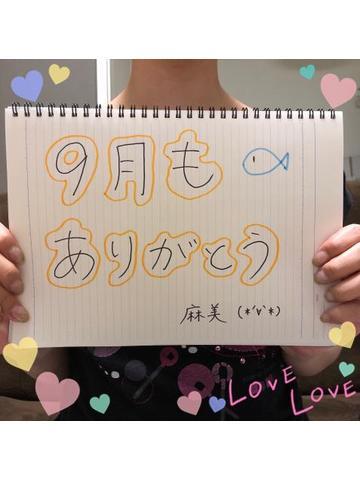 9月も
ありがとう
麻美 (*'∀'*)
LOVE
LOVE